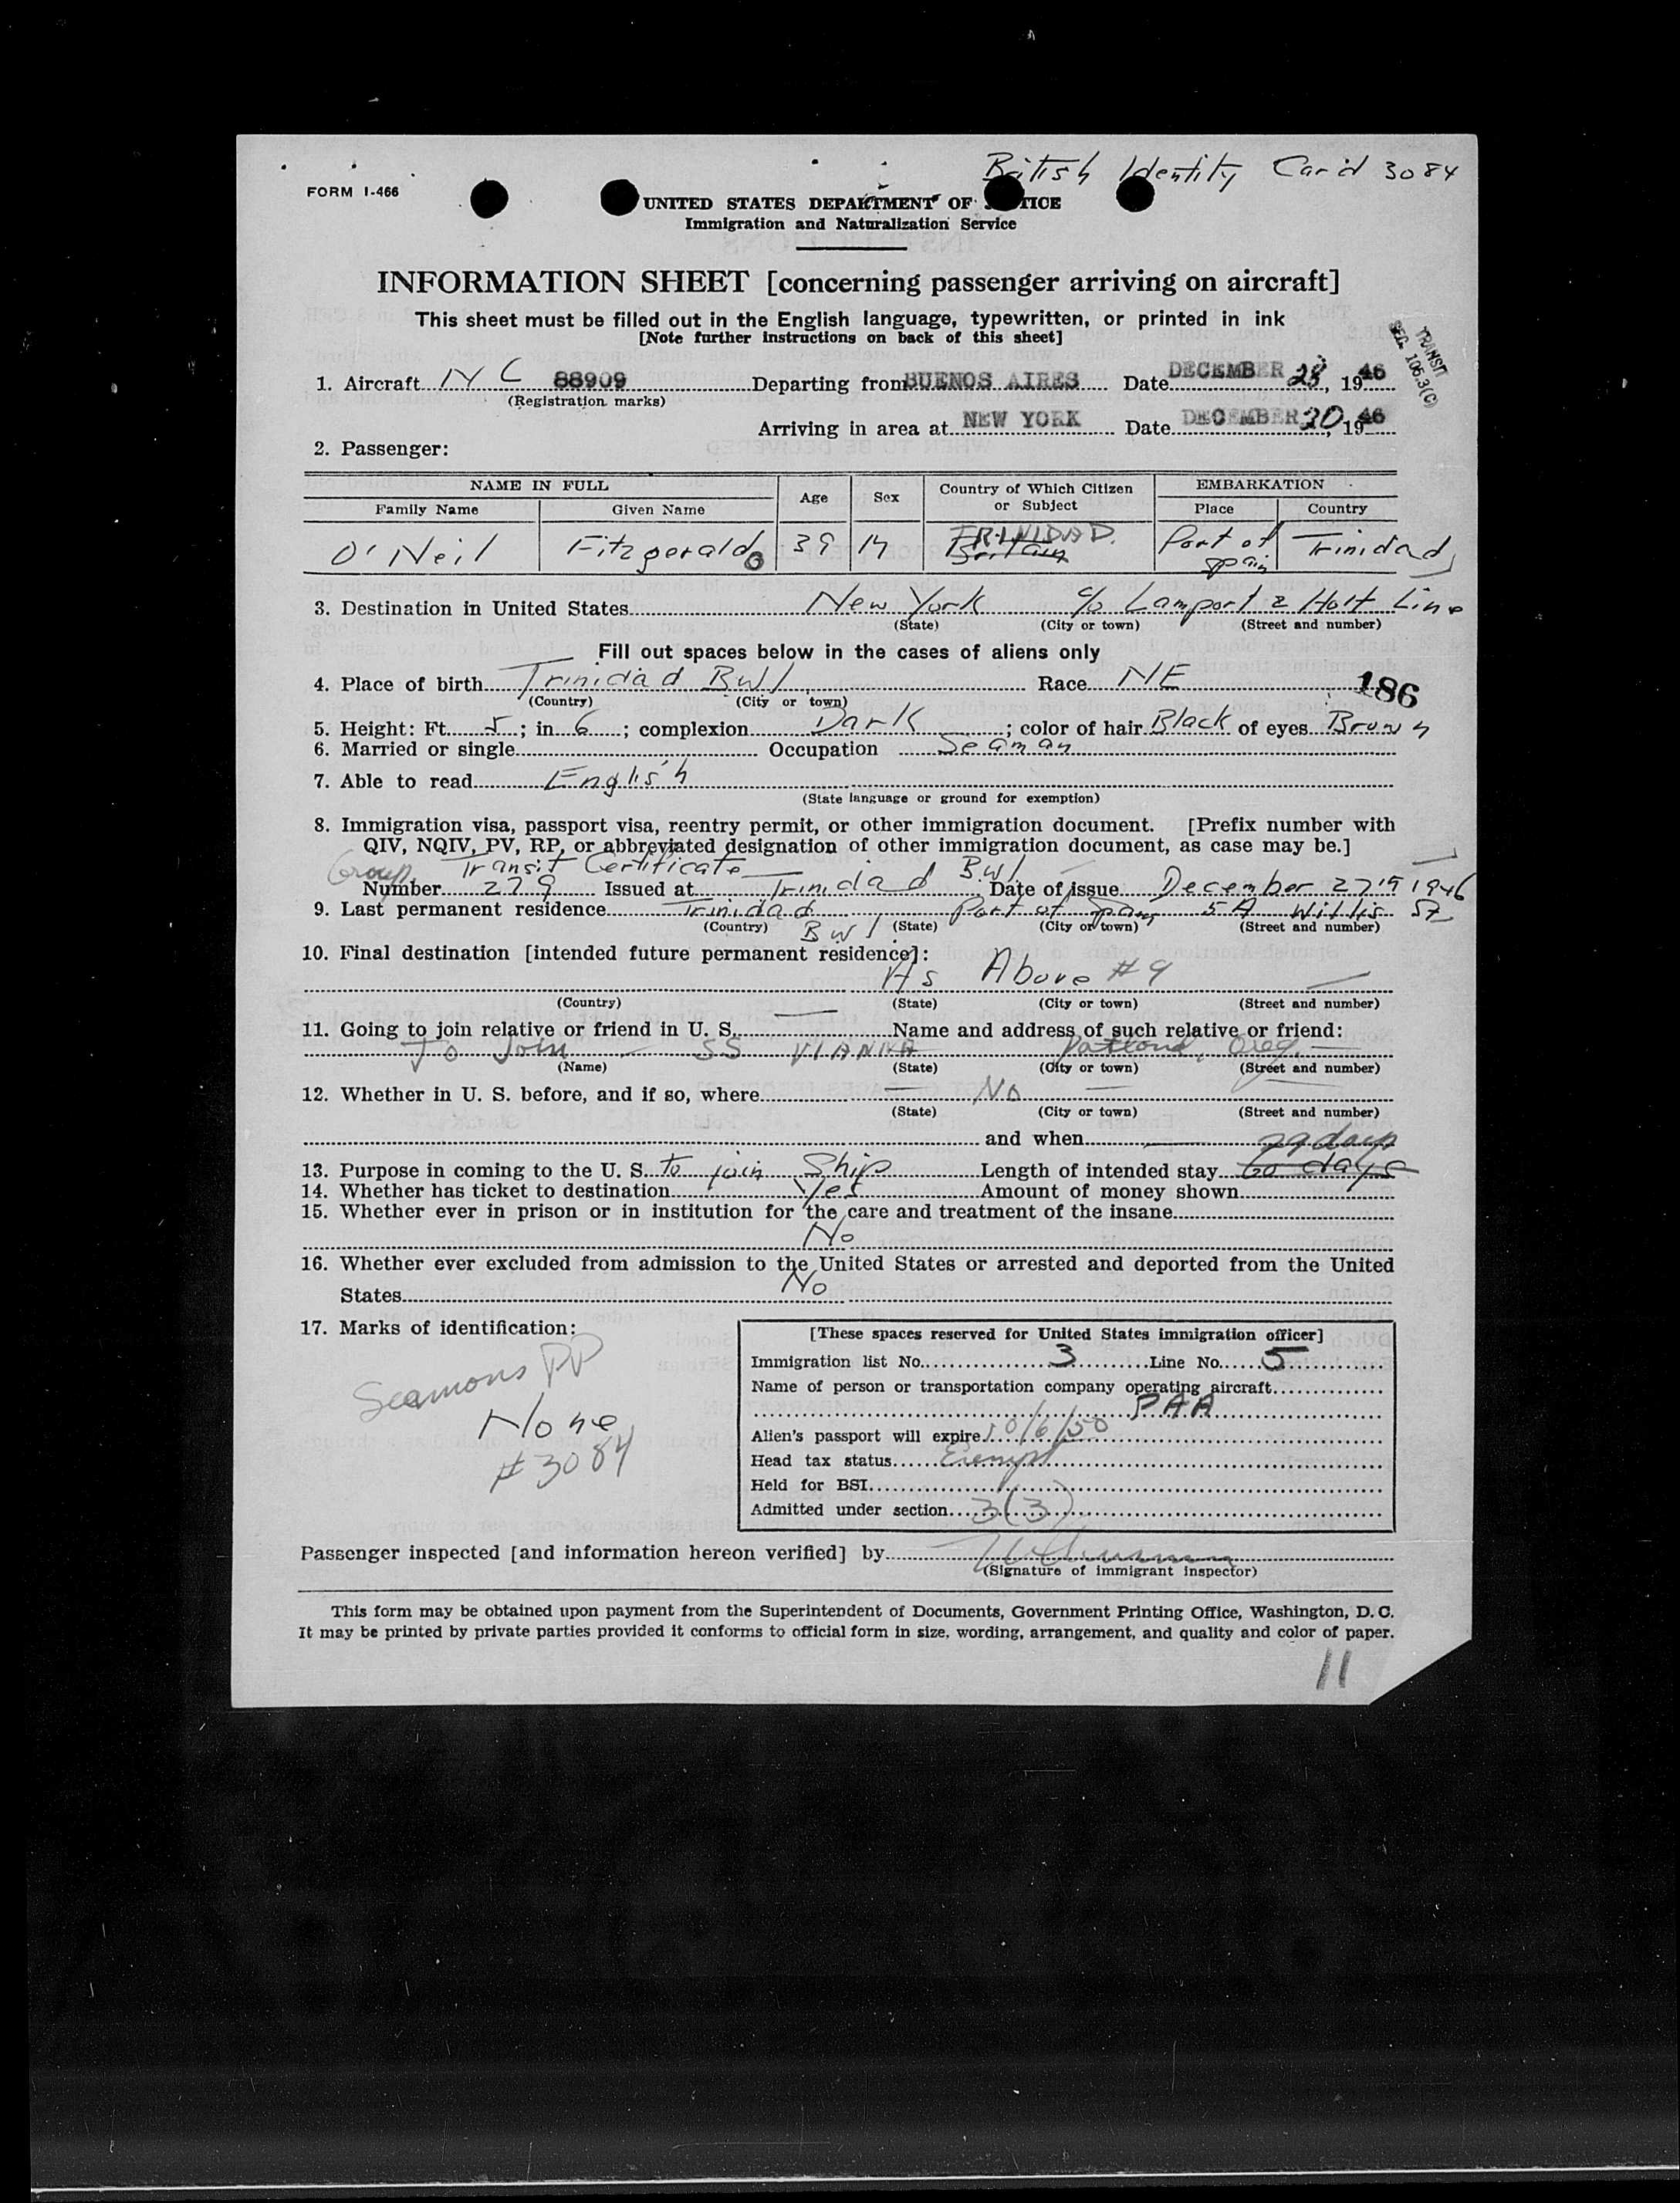 British Identity Card 3084
FORM I-466
UNITED STATES DEPARTMENT OF JUSTICE
Immigration and Naturalization Service
INFORMATION SHEET [concerning passenger arriving on aircraft]
This sheet must be filled out in the English language, typewritten, or printed in ink
[Note further instructions on back of this sheet]
TRANSIT
SEC. 106.3(C)
1. Aircraft NC 88909 Departing from BUENOS AIRES Date DECEMBER 28, 1946
(Registration marks)
Arriving in area at NEW YORK Date DECEMBER 30, 1946
2. Passenger:
NAME IN FULL Age Sex Country of Which Citizen or Subject EMBARKATION
Family Name Given Name Place Country
TRINIDAD
O'Neil Fitzgerald 39 M Britain Port of Spain Trinidad
3. Destination in United States New York c/o Lamport & Holt Line
(State) (City or town) (Street and number)
Fill out spaces below in the cases of aliens only
4. Place of birth Trinidad BWI Race NE 186
(Country) (City or town)
5. Height: Ft. 5; in 6; complexion Dark; color of hair Black of eyes Brown
6. Married or single Occupation Seaman
7. Able to read English
(State language or ground for exemption)
8. Immigration visa, passport visa, reentry permit, or other immigration document. [Prefix number with
QIV, NQIV, PV, RP, or abbreviated designation of other immigration document, as case may be.]
Group Transit Certificate
Number 279 Issued at Trinidad BWI Date of issue December 27 1946
9. Last permanent residence Trinidad BWI Port of Spain 5A Willis St
(Country) (State) (City or town) (Street and number)
10. Final destination [intended future permanent residence]:
As Above #9
(Country) (State) (City or town) (Street and number)
11. Going to join relative or friend in U. S. Name and address of such relative or friend:
To Join SS VIANNA Portland, Oreg.
(Name) (State) (City or town) (Street and number)
12. Whether in U. S. before, and if so, where No
(State) (City or town) (Street and number)
and when
29 days
13. Purpose in coming to the U. S. to join Ship Length of intended stay 60 days
14. Whether has ticket to destination Yes Amount of money shown
15. Whether ever in prison or in institution for the care and treatment of the insane
No
16. Whether ever excluded from admission to the United States or arrested and deported from the United
States No
17. Marks of identification:
Seamons PP
None
#3084
[These spaces reserved for United States immigration officer]
Immigration list No. 3 Line No. 5
Name of person or transportation company operating aircraft
PAA
Alien's passport will expire 10/6/50
Head tax status Exempt
Held for BSI
Admitted under section 3(3)
Passenger inspected [and information hereon verified] by
(Signature of immigrant inspector)
This form may be obtained upon payment from the Superintendent of Documents, Government Printing Office, Washington, D. C.
It may be printed by private parties provided it conforms to official form in size, wording, arrangement, and quality and color of paper.
11